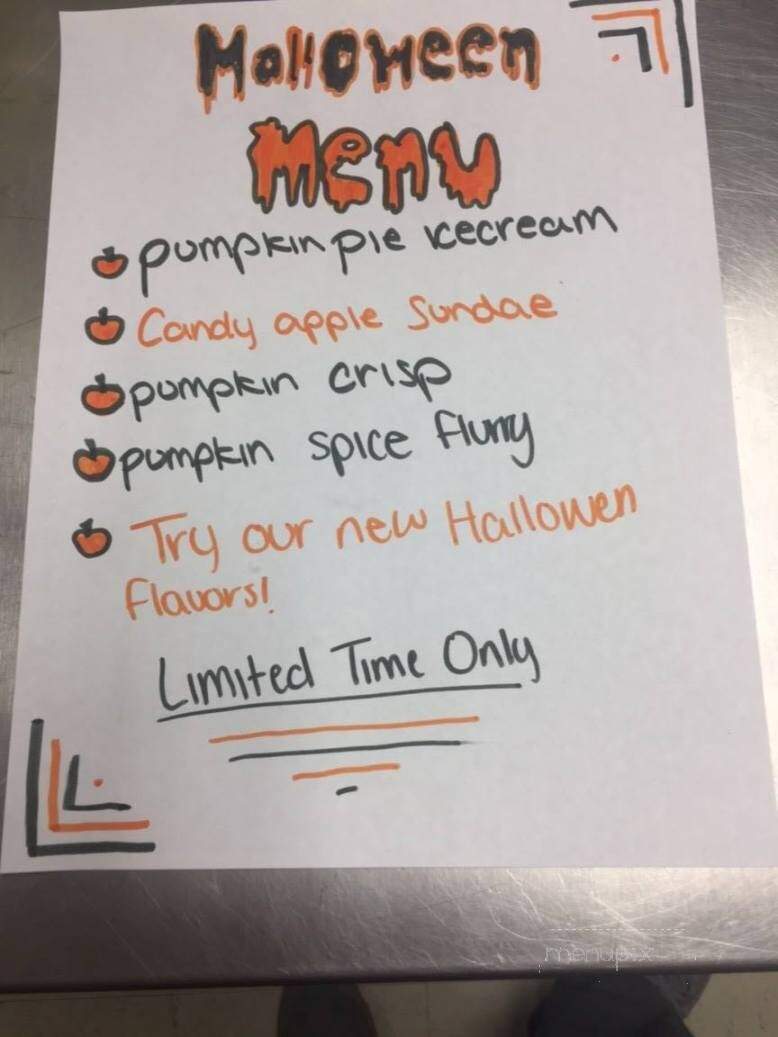 Halloween
Menu
pumpkin pie icecream
Candy apple Sundae
pumpkin crisp
pumpkin spice flurry
Try our new Hallowen
flavors!
Limited Time Only
menupix